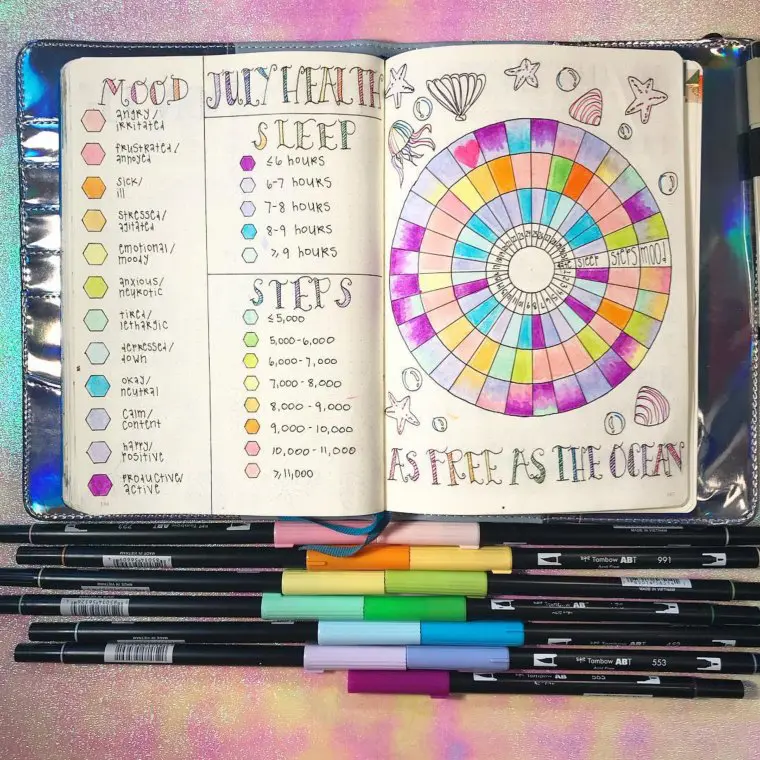 MOOD
angry/
irritated
frustrated/
annoyed
sick/
ill
stressed/
agitated
emotional/
moody
anxious/
neurotic
tired/
lethargic
depressed/
down
okay/
neutral
calm/
content
happy/
positive
productive/
active
JULY HEALTH
SLEEP
≤6 hours
6-7 hours
7-8 hours
8-9 hours
≥9 hours
STEPS
≤5,000
5,000-6,000
6,000-7,000
7,000-8,000
8,000-9,000
9,000-10,000
10,000-11,000
≥11,000
SLEEP STEPS MOOD
AS FREE AS THE OCEAN
MADE IN VIETNAM
Tombow ABT 991
MADE IN VIETNAM
Tombow ABT
MADE IN VIETNAM
Tombow ABT 553
Tombow ABT